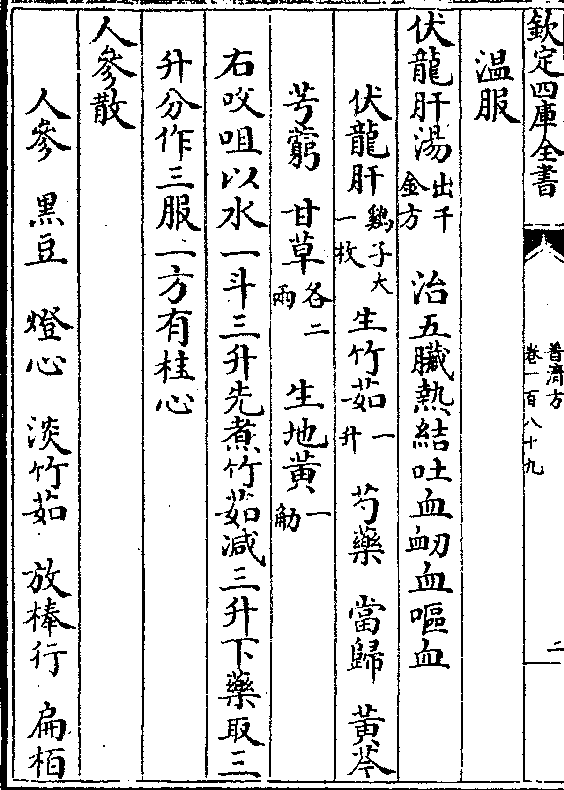 欽定四庫全書
普濟方
卷一百八十九
二
溫服
伏龍肝湯出千金方 治五臟熱結吐血衂血嘔血
伏龍肝鷄子大一枚 生竹茹一升 芍藥 當歸 黃芩
芎藭 甘草各二兩 生地黃一觔
右㕮咀以水一斗三升先煮竹茹減三升下藥取三
升分作三服一方有桂心
人參散
人參 黑豆 燈心 淡竹茹 放棒行 扁柏